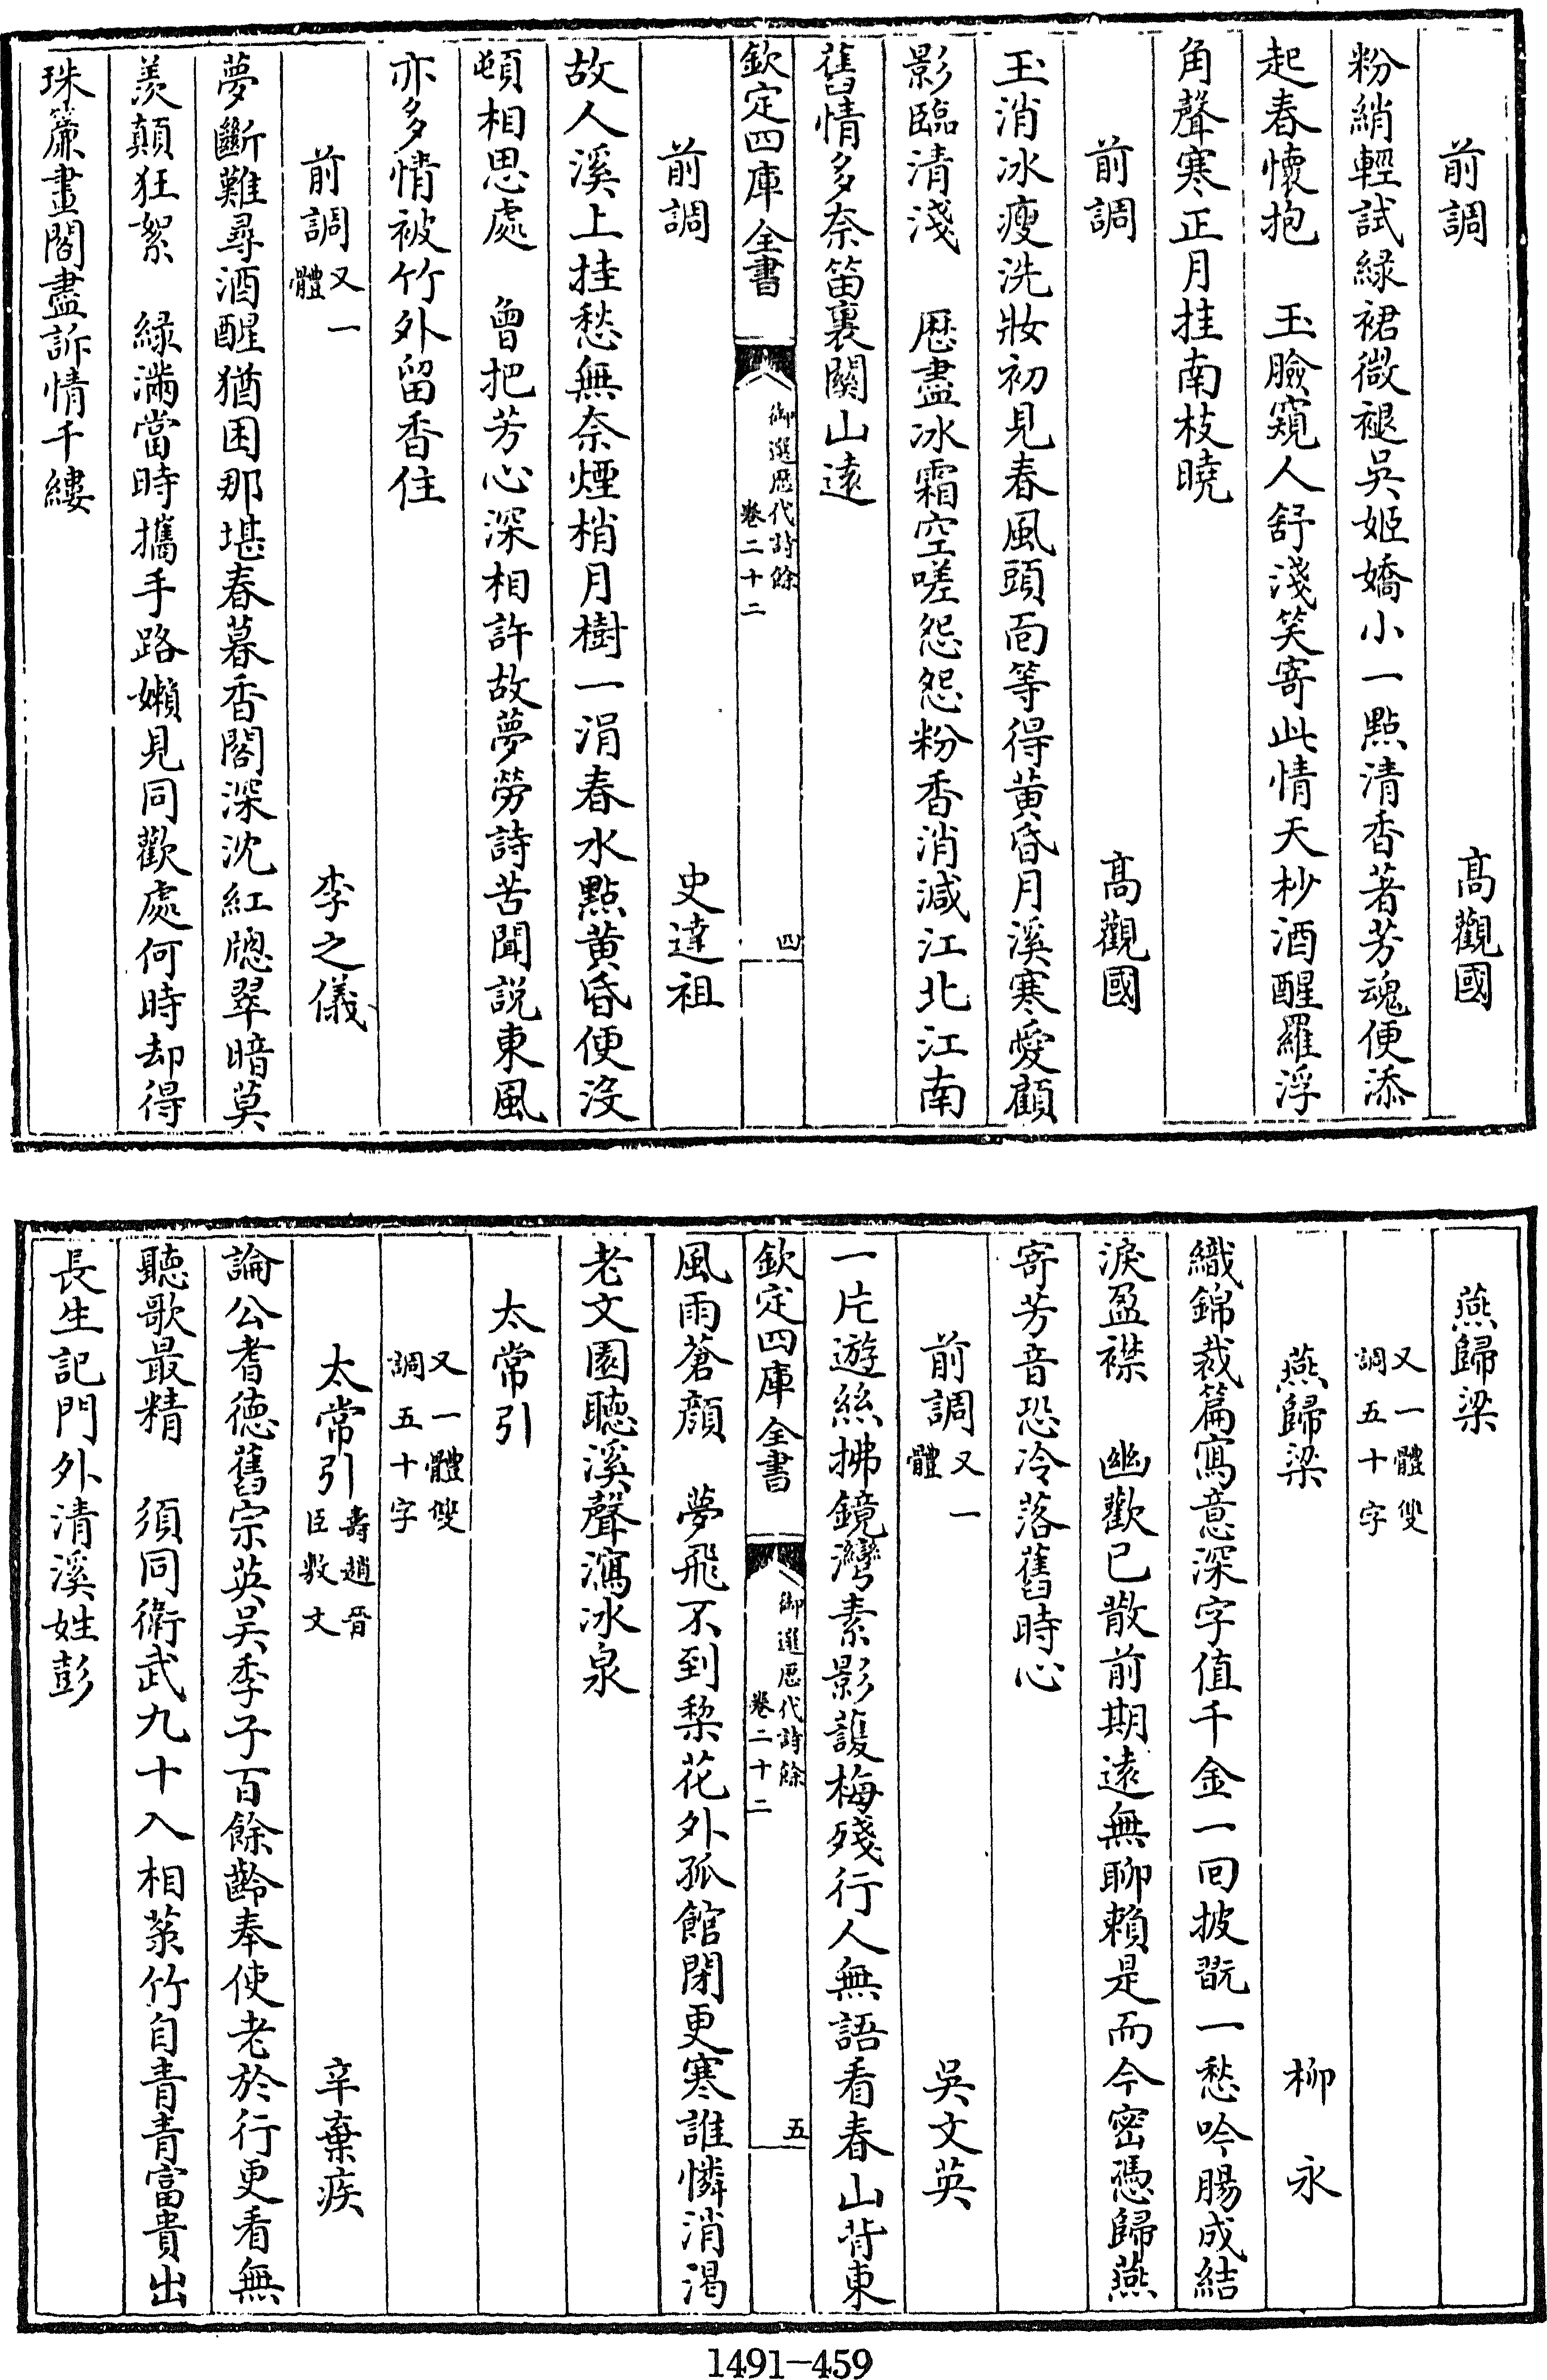 前調　　高觀國
粉綃輕試綠裙微褪吳姬嬌小一點清香著芳魂便添
起春懷抱　玉臉窺人舒淺笑寄此情天杪酒醒羅浮
角聲寒正月挂南枝曉
前調　　高觀國
玉消冰瘦洗妝初見春風頭面等得黃昏月溪寒愛顧
影臨清淺　歷盡冰霜空嗟怨怨粉香消減江北江南
舊情多奈笛裏關山遠
欽定四庫全書
御選歷代詩餘
卷二十二
四
前調　　史達祖
故人溪上挂愁無奈煙梢月樹一涓春水點黃昏便沒
頓相思處　曾把芳心深相許故夢勞詩苦聞說東風
亦多情被竹外留香住
前調又一體　　李之儀
夢斷難尋酒醒猶困那堪春暮香閣深沈紅牕翠暗莫
羨顛狂絮　綠滿當時攜手路嬾見同歡處何時却得
珠簾畫閣盡訴情千縷
燕歸梁
又一體雙
調五十字
燕歸梁　　柳永
織錦裁篇寫意深字值千金一回披翫一愁吟腸成結
淚盈襟　幽歡已散前期遠無聊賴是而今密憑歸燕
寄芳音恐冷落舊時心
前調又一體　　吳文英
一片遊絲拂鏡灣素影護梅殘行人無語看春山背東
欽定四庫全書
御選歷代詩餘
卷二十二
五
風雨蒼顏　夢飛不到梨花外孤館閉更寒誰憐消渴
老文園聽溪聲瀉冰泉
太常引
又一體雙
調五十字
太常引壽趙晉臣敷文　　辛棄疾
論公耆德舊宗英吳季子百餘齡奉使老於行更看無
聽歌最精　須同衛武九十入相菉竹自青青富貴出
長生記門外清溪姓彭
1491-459